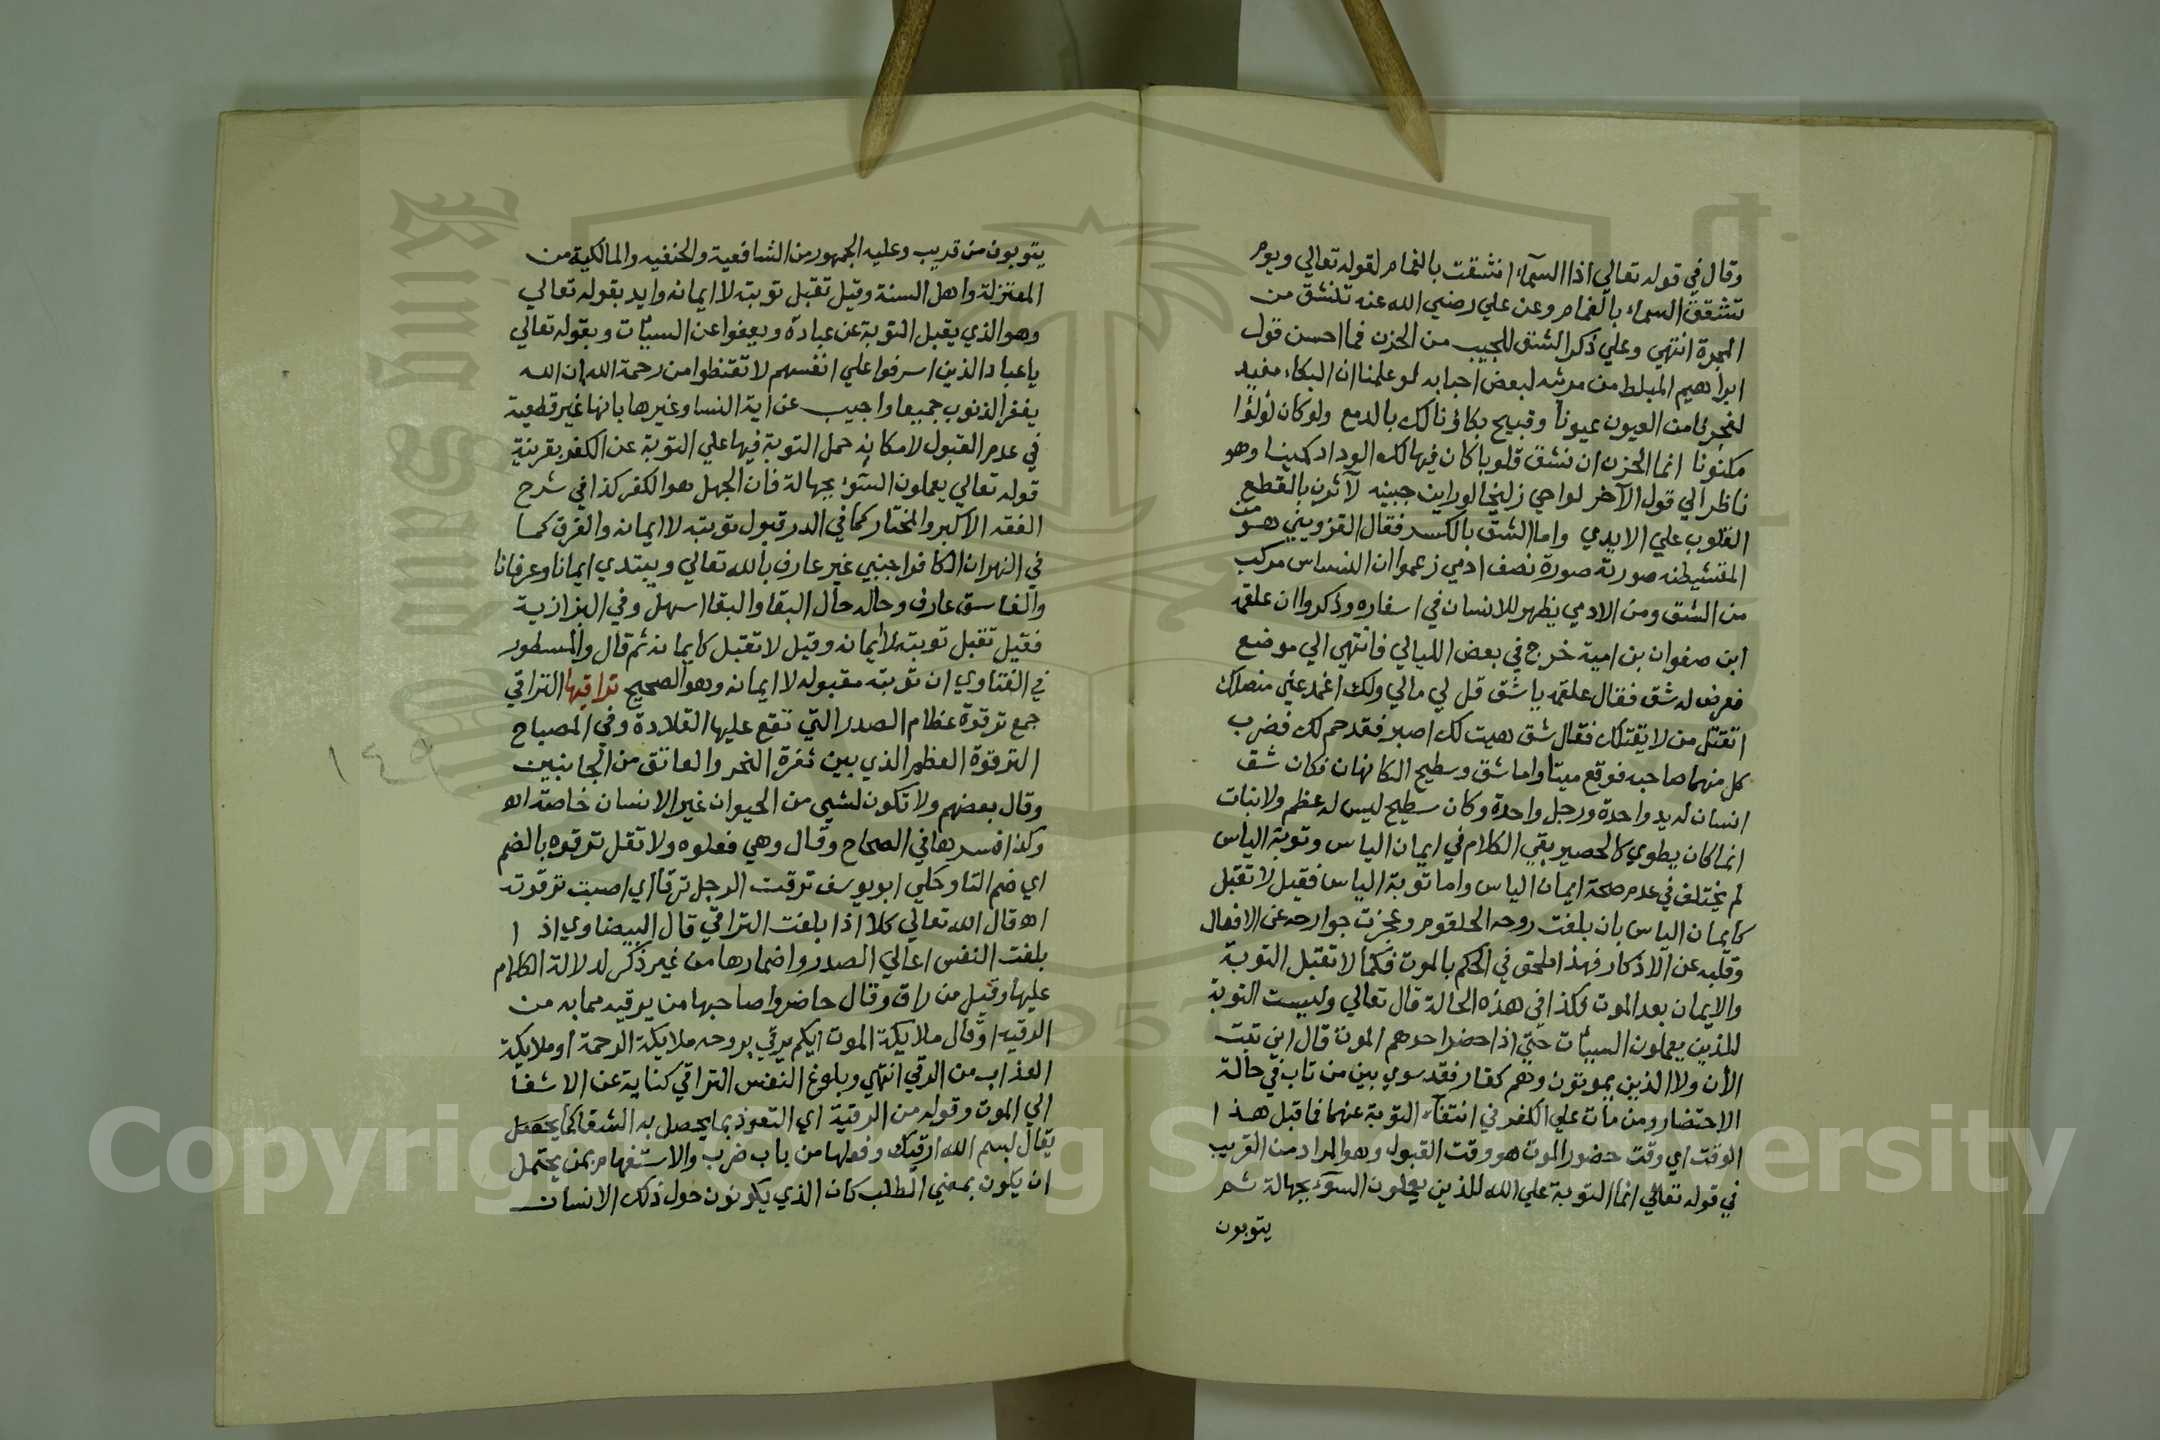 وقال في قوله تعالي اذا السمآء انشقت بالغمام لقوله تعالي ويوم
تشقق السماء بالغمام وعن علي رضي الله عنه تنشق من
المجرة انتهي وعلي ذكر الشق للجيب من الحزن فما احسن قول
ابراهيم المبلط من مرثيه لبعض احبابه لو علمنا ان البكاء مفيد
لفجرنا من العيون عيونا وقبيح بكاؤنا لك بالدمع ولو كان لؤلؤا
مكنونا انما الحزن ان نشق قلوبا كان فيها لك الوداد كمينا وهو
ناظر الي قول الآخر لواحي زليخا لو راين جبينه لآثرن بالقطع
القلوب علي الايدي واما الشق بالكسر فقال القزويني هو من
المتشيطنه صورته صورة نصف ادمي زعموا ان النسناس مركب
من الشق ومن الادمي يظهر للانسان في اسفاره وذكروا ان علقمه
ابن صفوان بن امية خرج في بعض الليالي فانتهي الي موضع
فعرض له شق فقال علقمه يا شق قل لي مالي ولك اغمد عني منصلك
اتقتل من لا يقتلك فقال شق هيت لك اصبر فقد حم لك فضرب
كل منهما صاحبه فوقع ميتا واما شق وسطيح الكاهنان فكان شق
انسان له يد واحدة ورجل واحدة وكان سطيح ليس له عظم ولا بنات
انما كان يطوي كالحصير بقي الكلام في ايمان الياس وتوبة الياس
لم يختلف في عدم صحة ايمان الياس واما توبة الياس فقيل لا تقبل
كايمان الياس بان بلغت روحه الحلقوم وعجزت جوارحه عن الافعال
وقلبه عن الاذكار فهذا ملحق في الحكم بالموت فكما لا تقبل التوبة
والايمان بعد الموت فكذا في هذه الحالة قال تعالي وليست التوبة
للذين يعملون السيئات حتي اذا حضر احدهم الموت قال اني تبت
الأن ولا الذين يموتون وهم كفار فقد سوي بين من تاب في حالة
الاحتضار ومن مات علي الكفر في انتفآء التوبة عنهما فما قبل هذا
الوقت اي وقت حضور الموت هو وقت القبول وهو المراد من القريب
في قوله تعالي انما التوبة علي الله للذين يعملون السوء بجهالة ثم
يتوبون
يتوبون من قريب وعليه الجمهور من الشافعية والحنفيه والمالكية من
المعتزلة واهل السنة وقيل تقبل توبته لا ايمانه وايد بقوله تعالي
وهو الذي يقبل التوبة عن عباده ويعفوا عن السيئات وبقوله تعالي
ياعباد الذين اسرفوا علي انفسهم لا تقنطوا من رحمة الله ان الله
يغفر الذنوب جميعا واجيب عن اية النسا وغيرها بانها غير قطعية
في عدم القبول لامكانه حمل التوبة فيها علي التوبة عن الكفر بقرينة
قوله تعالي يعملون السوء بجهالة فان الجهل هو الكفر كذا في شرح
الفقه الاكبر والمختار كما في الدر قبول توبته لا ايمانه والفرق كما
في النهر ان الكافر اجنبي غير عارف بالله تعالي ويبتدي ايمانا وعرفانا
والفاسق عارف وحاله حال البقا والبقا اسهل وفي البزازية
فقيل تقبل توبته لا ايمانه وقيل لا تقبل كايمانه ثم قال والمسطور
في الفتاوي ان توبته مقبوله لا ايمانه وهو الصحيح تراقيها التراقي
جمع ترقوة عظام الصدر التي تقع عليها القلادة وفي المصباح
الترقوة العظم الذي بين ثغرة النحر والعاتق من الجانبين
وقال بعضهم ولا تكون لشيي من الحيوان غير الانسان خاصة اه
وكذا فسرها في الصحاح وقال وهي فعلوه ولا تقل ترقوه بالضم
اي ضم التا وحكي ابو يوسف ترقيت الرجل ترقاة اي اصبت ترقوته
اه قال الله تعالي كلا اذا بلغت التراقي قال البيضاوي اذا
بلغت النفس اعالي الصدر واضمارها من غير ذكر لدلالة الكلام
عليها وقيل من راق وقال حاضروا صاحبها من يرقيه مما به من
الرقيه او قال ملايكة الموت ايكم يرقي بروحه ملايكة الرحمة او ملايكة
العذاب من الرقي انتهي وبلوغ النفس التراقي كناية عن الاشفا
الي الموت وقوله من الرقية اي التعوذ بما يحصل به الشفا كما يحصل
يقال لبسم الله ارقيك وفعلها من باب ضرب والاستفهام بمن يحتمل
ان يكون بمعني الطلب كان الذي يكونون حول ذلك الانسان
١٤٩
Copyright © King Saud University
King Saud University
1957